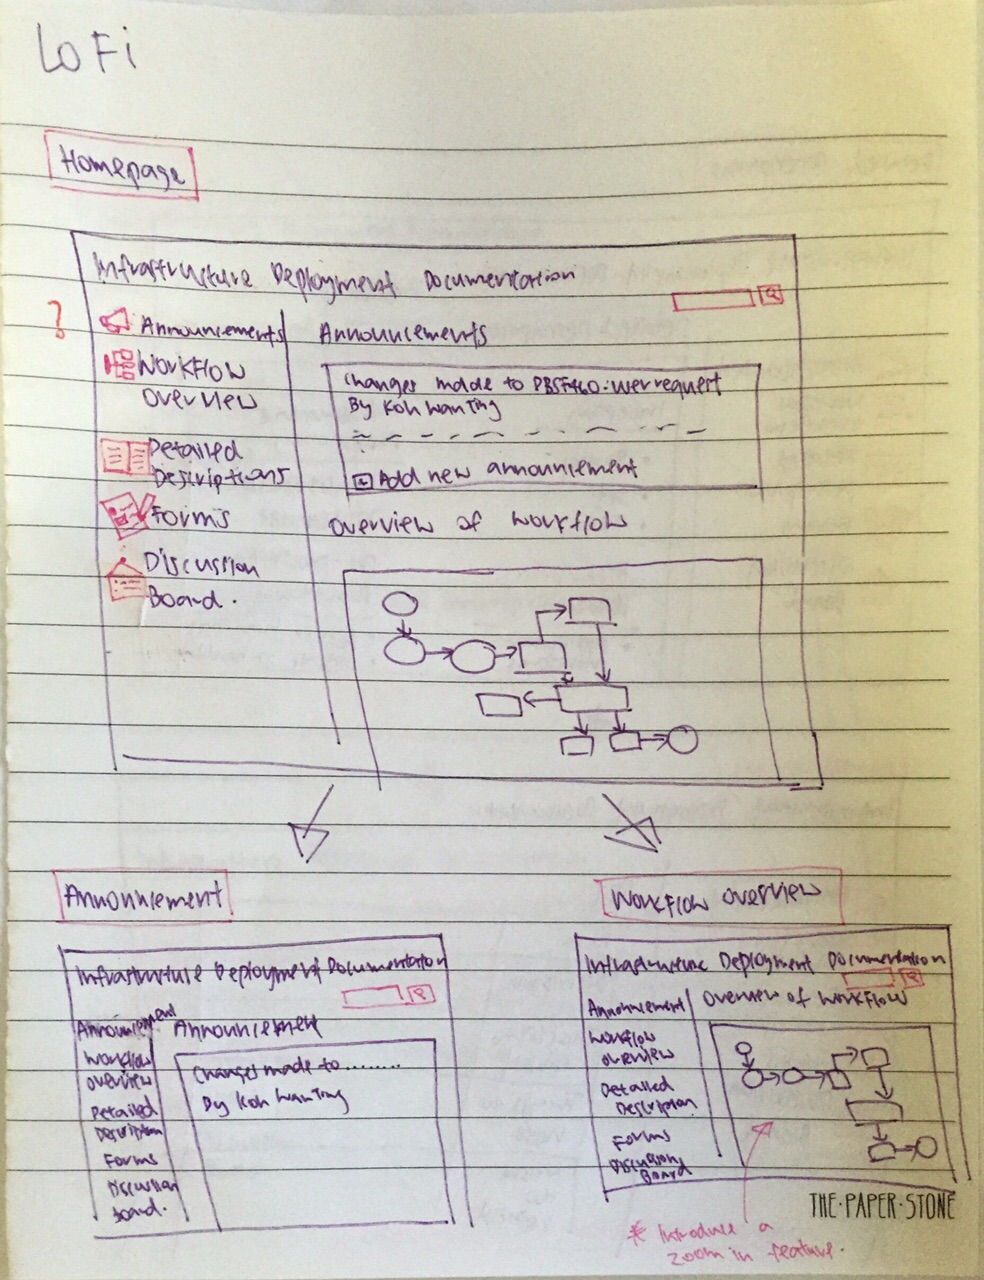 LoFi
Homepage
Infrastructure Deployment Documentation
?
Announcements
Workflow
overview
Detailed
Descriptions
Forms
Discussion
Board.
Announcements
Changes made to
By Koh Wan Ting
Add new announcement
Overview of workflow
Announcement
Infrastructure Deployment Documentation
Announcement
Workflow
overview
Detailed
Description
Forms
Discussion
Board.
Announcement
Changes made to........
By Koh Wan Ting
Workflow overview
Infrastructure Deployment Documentation
Announcement
Workflow
overview
Detailed
Description
Forms
Discussion
Board
Overview of workflow
* Introduce a
zoom in feature.
THE·PAPER·STONE